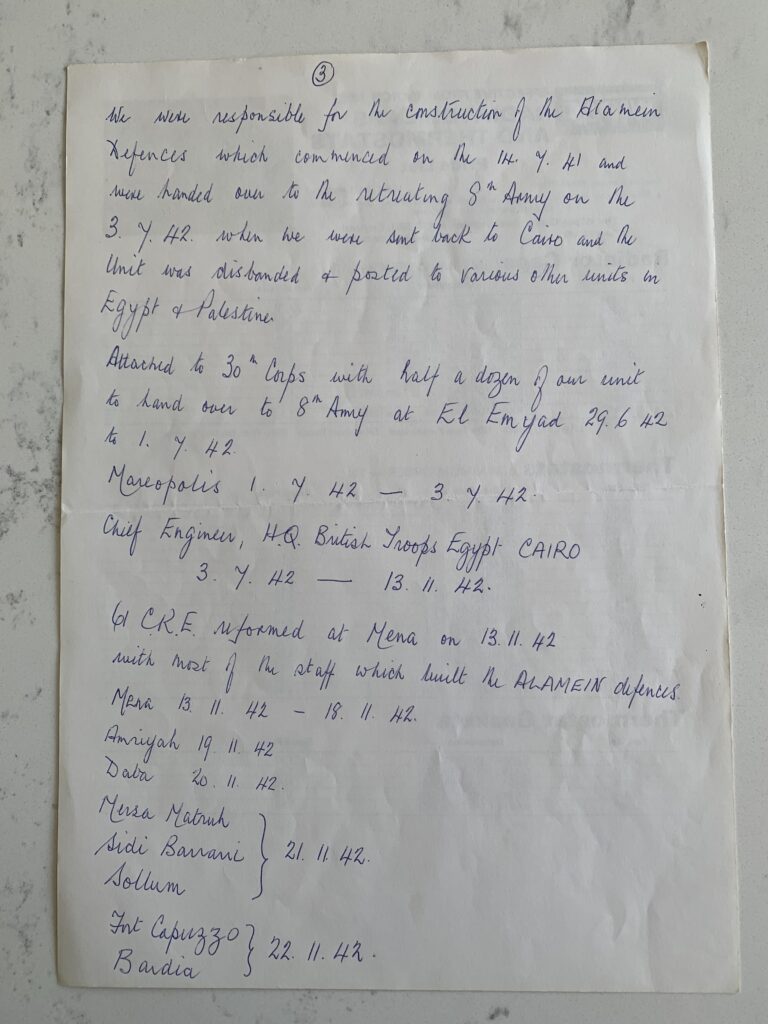 3
We were responsible for the construction of the Alamein
Defences which commenced on the 14. 7. 41 and
were handed over to the retreating 8th Army on the
3. 7. 42. when we were sent back to Cairo and the
Unit was disbanded & posted to various other units in
Egypt & Palestine.
Attached to 30th Corps with half a dozen of our unit
to hand over to 8th Army at El Emyad 29. 6 42
to 1. 7. 42.
Mareopolis 1. 7. 42 — 3. 7. 42.
Chief Engineer, H.Q. British Troops Egypt CAIRO
3. 7. 42 — 13. 11. 42.
61 C.R.E. reformed at Mena on 13. 11. 42
with most of the staff which built the ALAMEIN defences.
Mena 13. 11. 42 – 18. 11. 42.
Amriyah 19. 11. 42
Daba 20. 11. 42.
Mersa Matruh
Sidi Barrani } 21. 11 42.
Sollum
Fort Capuzzo } 22. 11. 42.
Bardia